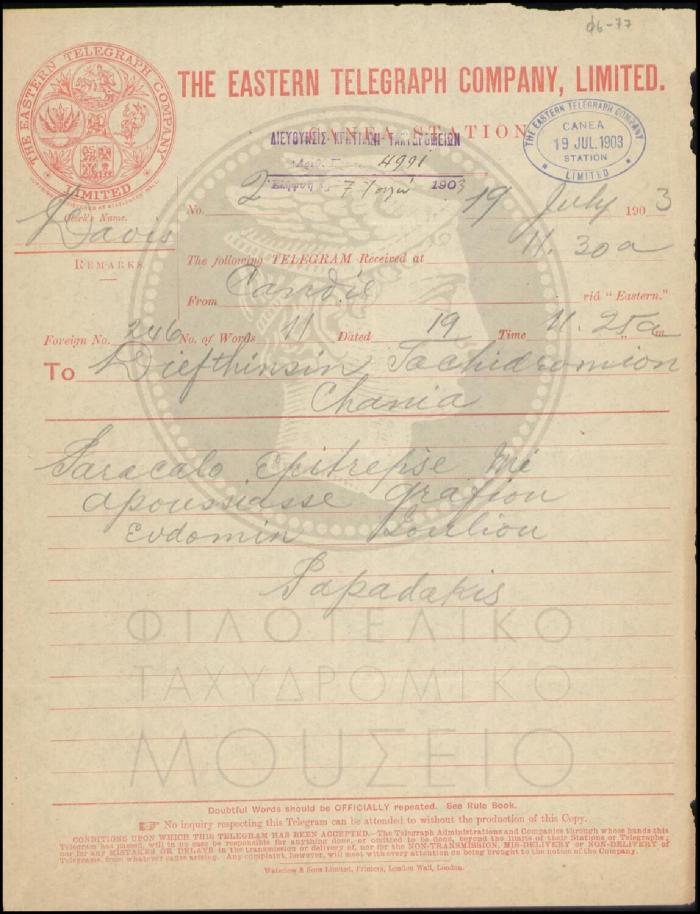 Φ6-77
THE EASTERN TELEGRAPH COMPANY LIMITED
THE EASTERN TELEGRAPH COMPANY, LIMITED.
CANEA STATION
ΔΙΕΥΘΥΝΣΙΣ ΚΡΗΤΙΚΩΝ ΤΑΧΥΔΡΟΜΕΙΩΝ
4991
7 1903
THE EASTERN TELEGRAPH COMPANY
CANEA
19 JUL.1903
STATION
LIMITED
Clerk's Name.
Davis
No. 2 19 July 1903
REMARKS
The following TELEGRAM Received at 11.30a
From Candie viâ "Eastern."
Foreign No. 246 No. of Words 11 Dated 19 Time 11.25a m
To Diefthinsin Tachidromion
Chania
Paracalo Epitrepse Mi
apoussiasse grafiou
Evdomin Iouliou
Papadakis
ΦΙΛΟΤΕΛΙΚΟ
ΤΑΧΥΔΡΟΜΙΚΟ
ΜΟΥΣΕΙΟ
Doubtful Words should be OFFICIALLY repeated. See Rule Book.
No inquiry respecting this Telegram can be attended to without the production of this Copy.
CONDITIONS UPON WHICH THIS TELEGRAM HAS BEEN ACCEPTED.—The Telegraph Administrations and Companies through whose hands this
Telegram has passed, will in no case be responsible for anything done, or omitted to be done, beyond the limits of their Stations or Telegraphs;
nor for any MISTAKES OR DELAYS in the transmission or delivery of, nor for the NON-TRANSMISSION, MIS-DELIVERY or NON-DELIVERY of
Telegrams, from whatever cause arising. Any complaint, however, will meet with every attention on being brought to the notice of the Company.
Waterlow & Sons Limited, Printers, London Wall, London.